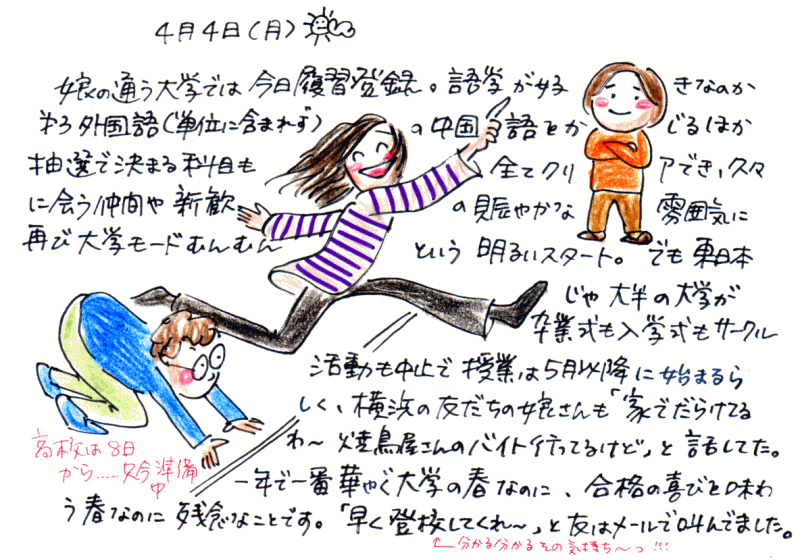 4月4日(月)
娘の通う大学では今日履習登録。語学が好きなのか
第3外国語(単位に含まれず)の中国語をかじるほか
抽選で決まる科目も全てクリアでき,久々
に会う仲間や新歓の賑やかな雰囲気に
再び大学モードむんむんという明るいスタート。でも東日本
じゃ大半の大学が
卒業式も入学式もサークル
活動も中止で授業は5月以降に始まるら
しく、横浜の友だちの娘さんも「家でだらけてる
わ〜焼鳥屋さんのバイト行ってるけど」と話してた。
一年で一番華やぐ大学の春なのに、合格の喜びを味わ
う春なのに残念なことです。「早く登校してくれ〜」と友はメールで叫んでました。
高校は8日
から……只今準備
中
←分かる分かるその気持ち〜っ!!!